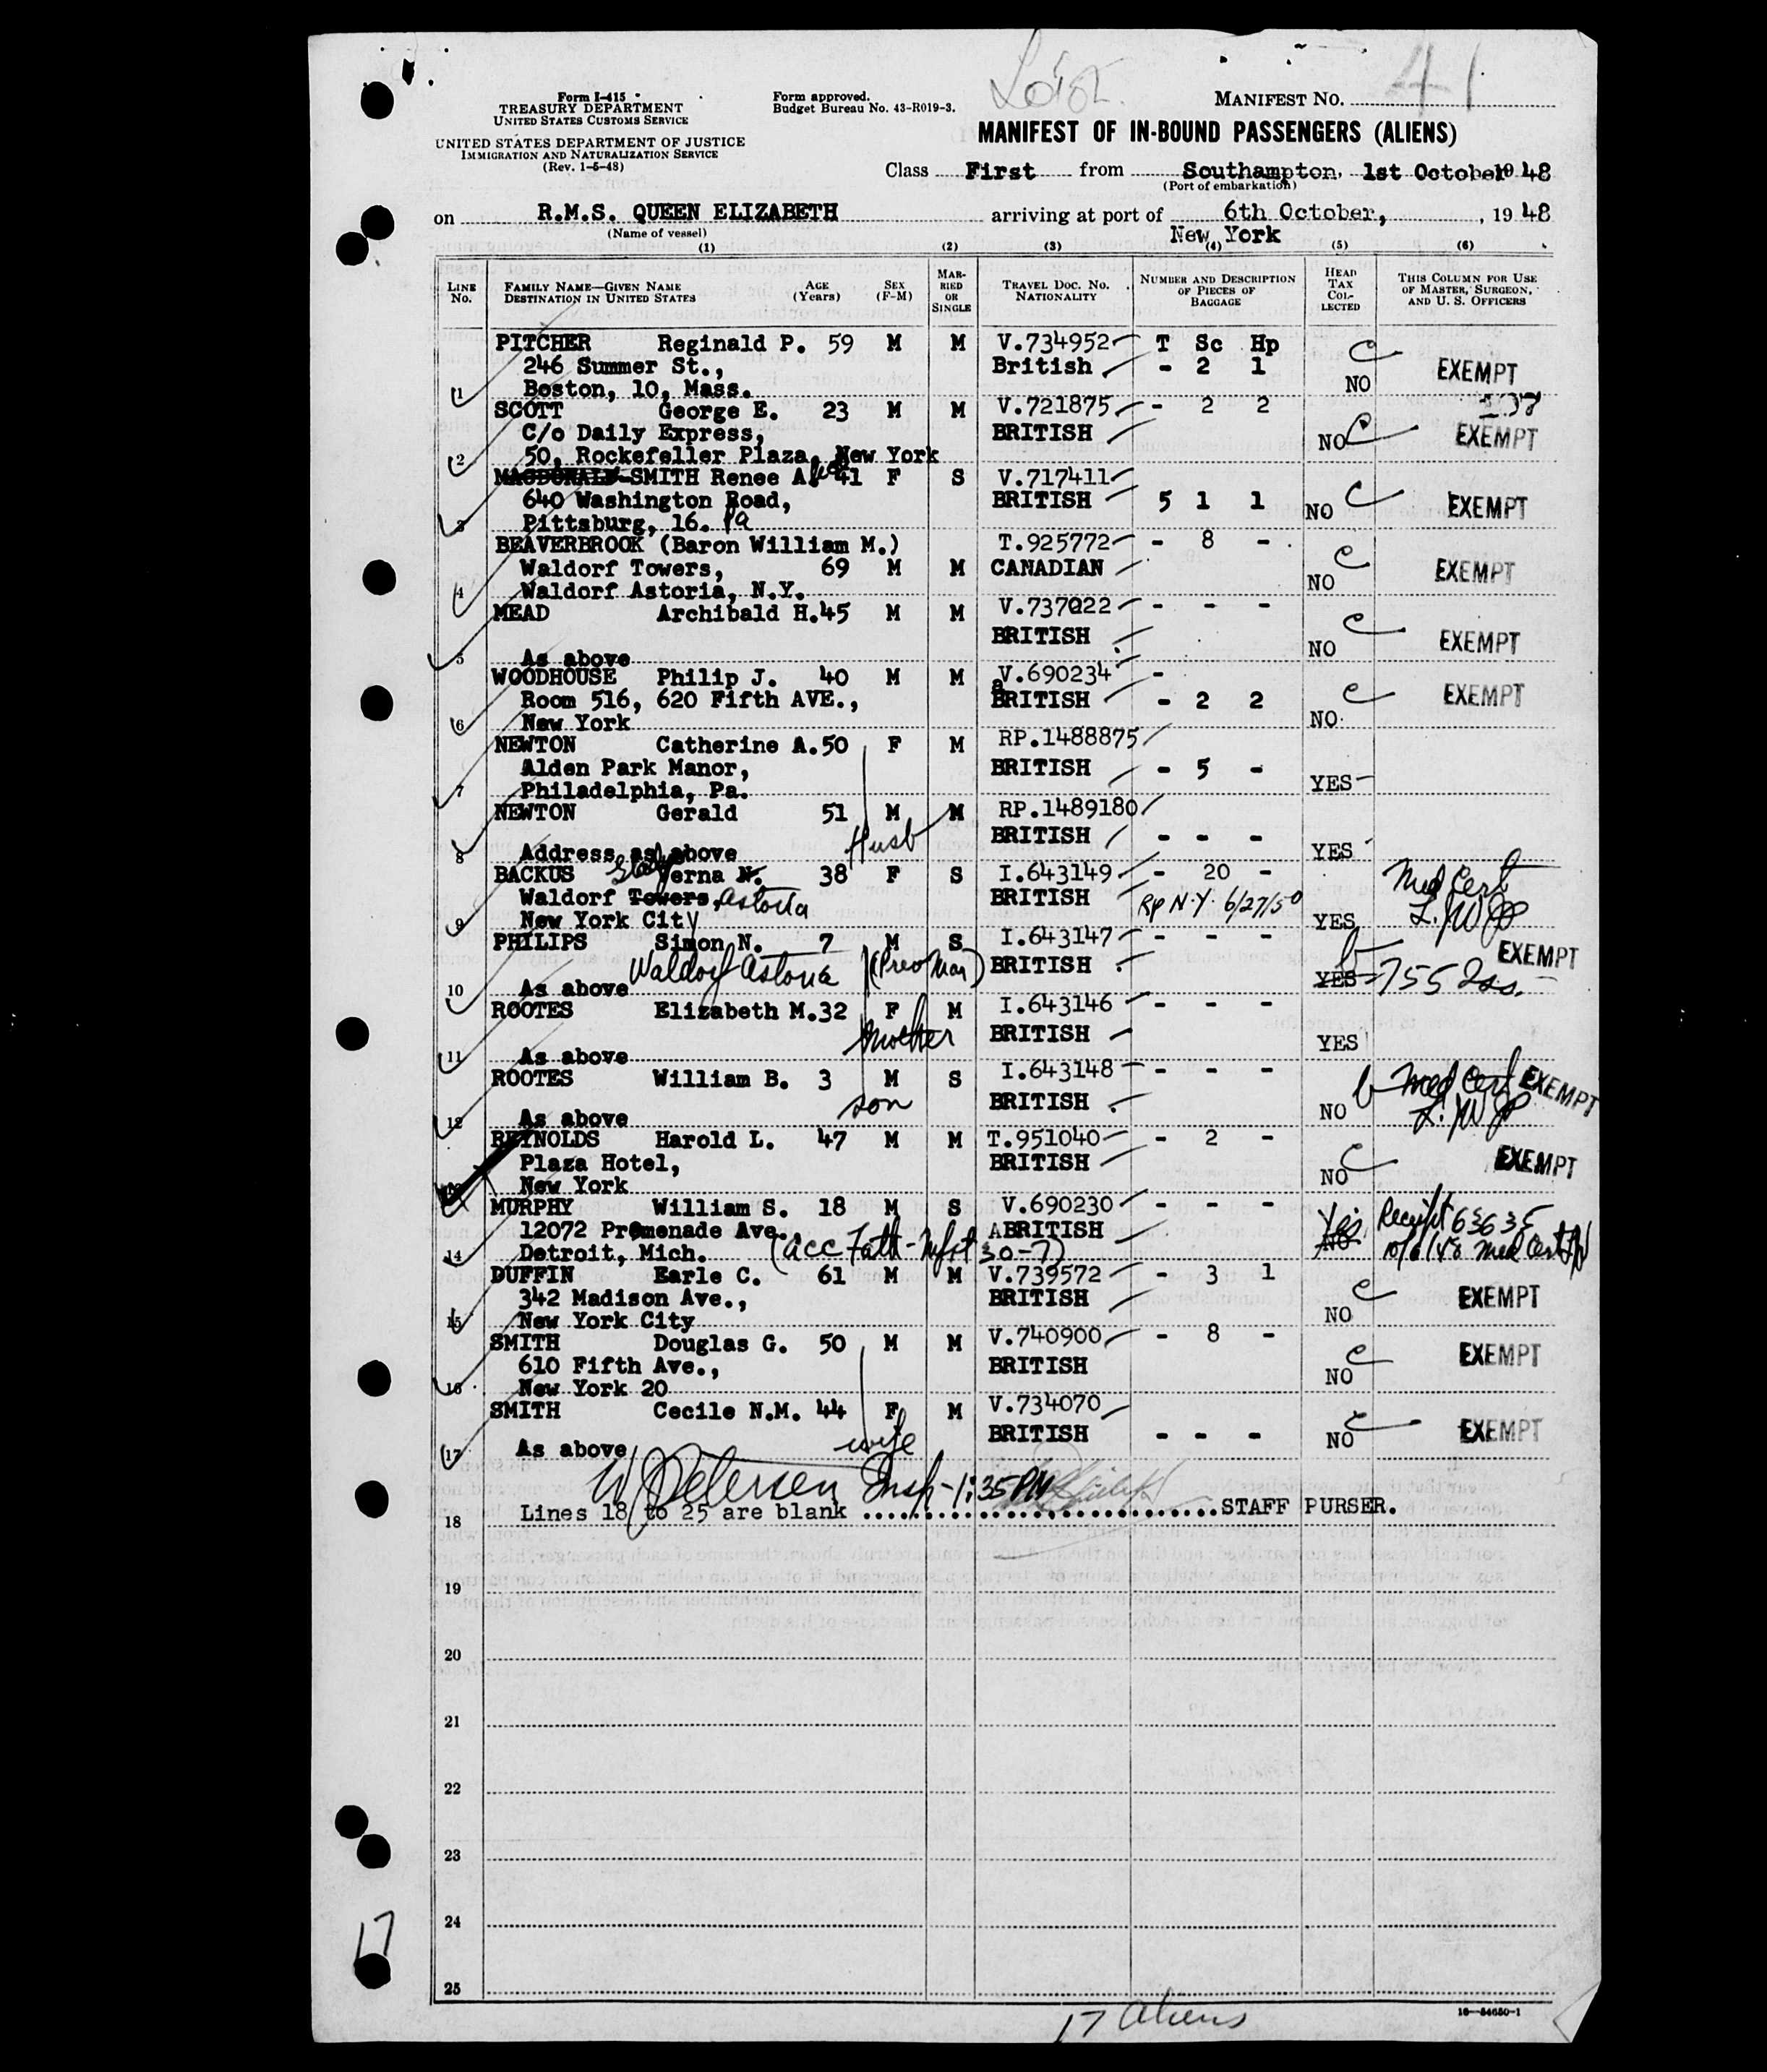 Form I-415
TREASURY DEPARTMENT
UNITED STATES CUSTOMS SERVICE
UNITED STATES DEPARTMENT OF JUSTICE
IMMIGRATION AND NATURALIZATION SERVICE
(Rev. 1-5-48)
Form approved.
Budget Bureau No. 43-R019-3.
MANIFEST NO. 41
MANIFEST OF IN-BOUND PASSENGERS (ALIENS)
Class First from Southampton, 1st October 1948
(Port of embarkation)
on R.M.S. QUEEN ELIZABETH arriving at port of 6th October, , 1948
(Name of vessel) New York
(1) (2) (3) (4) (5) (6)
LINE No. FAMILY NAME—GIVEN NAME DESTINATION IN UNITED STATES AGE (Years) SEX (F-M) MARRIED OR SINGLE TRAVEL DOC. NO. NATIONALITY NUMBER AND DESCRIPTION OF PIECES OF BAGGAGE HEAD TAX COLLECTED THIS COLUMN FOR USE OF MASTER, SURGEON, AND U. S. OFFICERS
PITCHER Reginald P. 59 M M V.734952 T Sc Hp
246 Summer St., British - 2 1 C EXEMPT
1 Boston, 10, Mass. NO
SCOTT George E. 23 M M V.721875 - 2 2
C/o Daily Express, BRITISH NO C EXEMPT
2 50, Rockefeller Plaza, New York
MACDONALD-SMITH Renee A. 41 F S V.717411
640 Washington Road, BRITISH 5 1 1 NO C EXEMPT
3 Pittsburg, 16. Pa
BEAVERBROOK (Baron William M.) T.925772 - 8 -
Waldorf Towers, 69 M M CANADIAN C EXEMPT
4 Waldorf Astoria, N.Y. NO
MEAD Archibald H. 45 M M V.737022 - - -
BRITISH C EXEMPT
5 As above NO
WOODHOUSE Philip J. 40 M M V.690234 -
Room 516, 620 Fifth AVE., BRITISH - 2 2 C EXEMPT
6 New York NO
NEWTON Catherine A. 50 F M RP.1488875
Alden Park Manor, BRITISH - 5 -
7 Philadelphia, Pa. YES
NEWTON Gerald 51 M M RP.1489180
Husb BRITISH - - -
8 Address as above YES
BACKUS Verna N. 38 F S I.643149 - 20 - Med Cert
Waldorf Towers, Astoria BRITISH Rp N.Y. 6/27/50
9 New York City YES
PHILIPS Simon N. 7 M S I.643147 - - - EXEMPT
Waldorf Astoria (Prev Mar) BRITISH
10 As above YES 755
ROOTES Elizabeth M. 32 F M I.643146 - - -
mother BRITISH
11 As above YES
ROOTES William B. 3 M S I.643148 - - - Med Cert EXEMPT
son BRITISH
12 As above NO
REYNOLDS Harold L. 47 M M T.951040 - 2 -
Plaza Hotel, BRITISH C EXEMPT
13 New York NO
MURPHY William S. 18 M S V.690230 - - - Yes Receipt 63635
12072 Promenade Ave., BRITISH NO 10/6/48 Med Cert
14 Detroit, Mich. (acc Fath - Mfst 30-7)
DUFFIN Earle C. 61 M M V.739572 - 3 1
342 Madison Ave., BRITISH C EXEMPT
15 New York City NO
SMITH Douglas G. 50 M M V.740900 - 8 -
610 Fifth Ave., BRITISH C EXEMPT
16 New York 20 NO
SMITH Cecile N.M. 44 F M V.734070
wife BRITISH - - - C EXEMPT
17 As above NO
W Petersen Insp - 1:35 PM
18 Lines 18 to 25 are blank ............................STAFF PURSER.
19
20
21
22
23
24
25
17
16—54650-1
17 Aliens